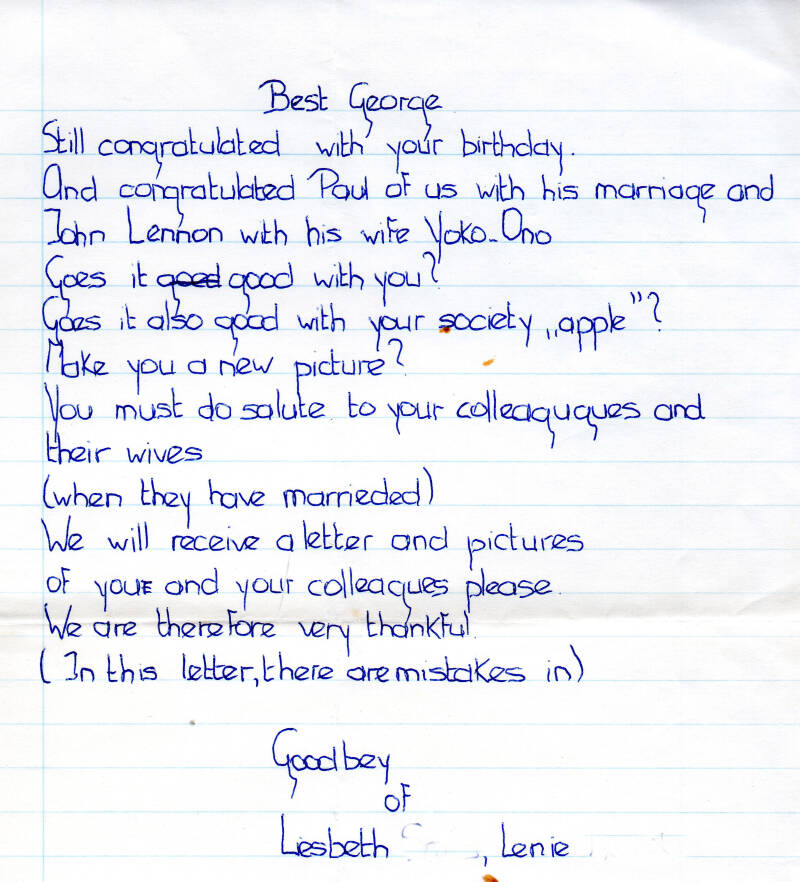 Best George
Still congratulated with your birthday.
And congratulated Paul of us with his marriage and
John Lennon with his wife Yoko-Ono
Goes it good good with you?
Goes it also good with your society „apple"?
Make you a new picture?
You must do salute to your colleaguques and
their wives
(when they have marrieded)
We will receive a letter and pictures
of your and your colleagues please.
We are therefore very thankful.
(In this letter, there are mistakes in)
Goodbey
of
Liesbeth , Lenie